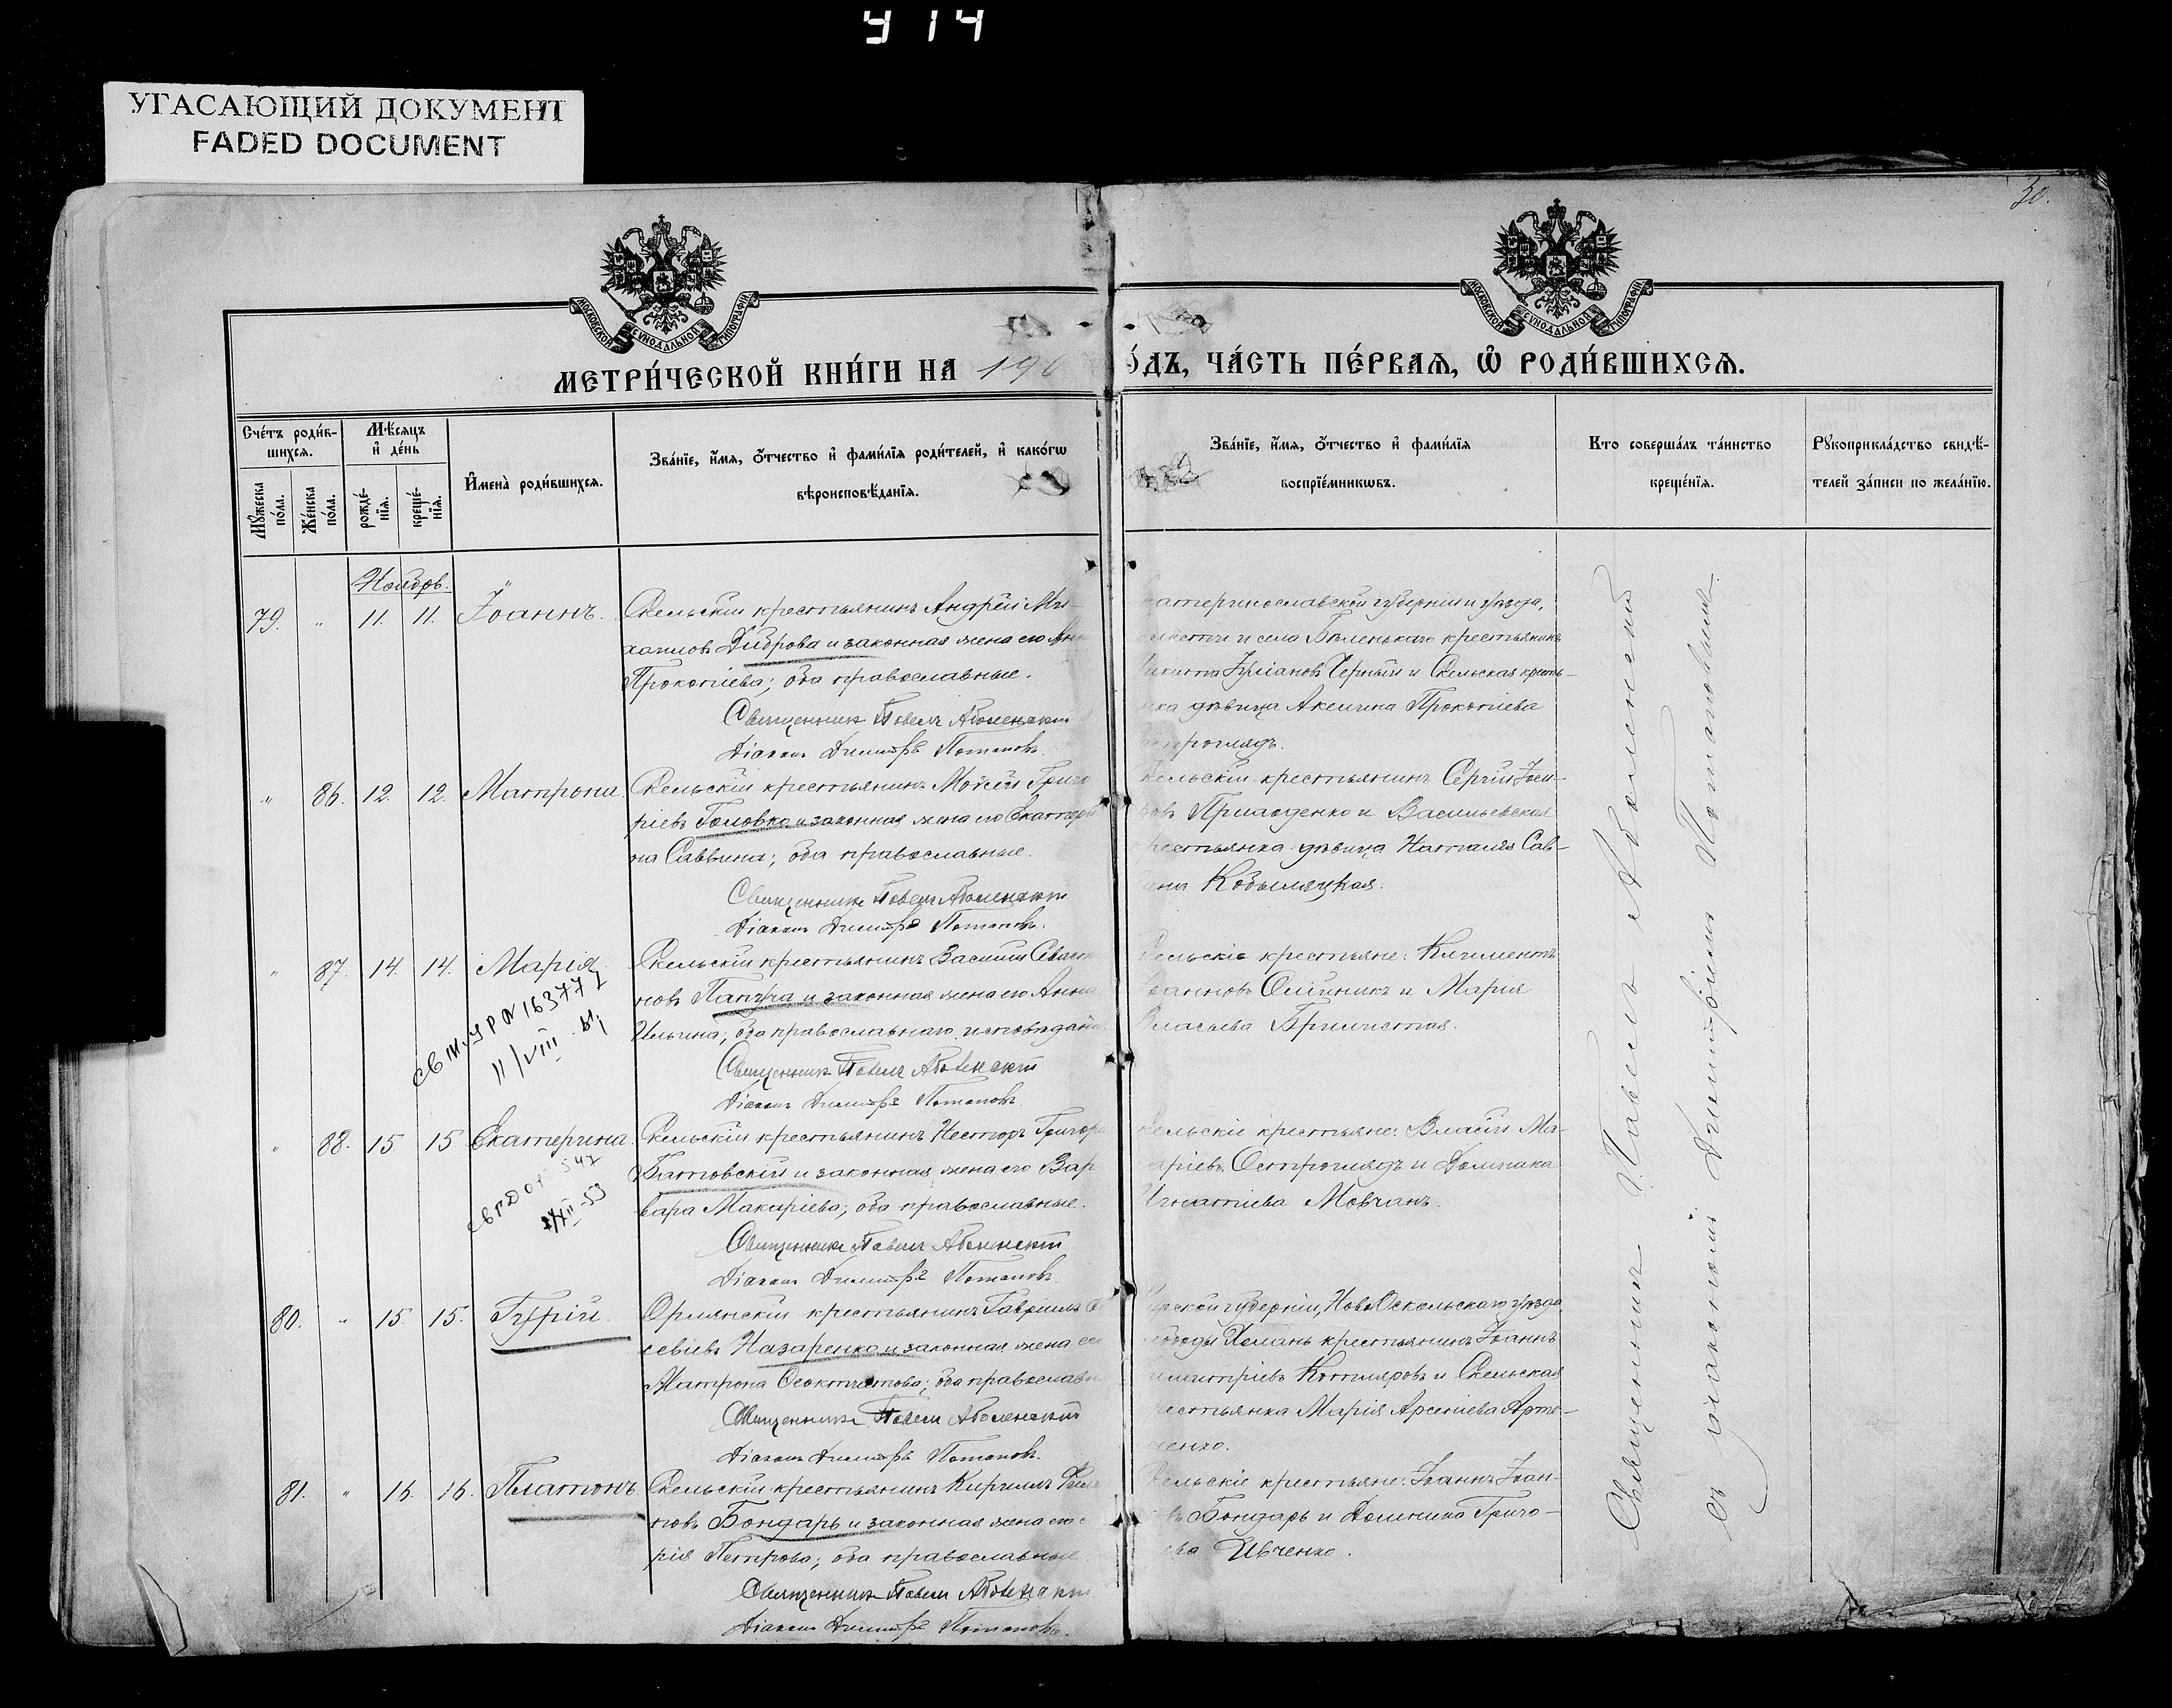 914
УГАСАЮЩИЙ ДОКУМЕНТ
FADED DOCUMENT
30.
МОСКОВСКОЙ СѴНОДАЛЬНОЙ ТИПОГРАФІИ
МОСКОВСКОЙ СѴНОДАЛЬНОЙ ТИПОГРАФІИ
МЕТРИ́ЧЕСКОЙ КНИ́ГИ НА 190
О́ДЪ, ЧА́СТЬ ПЕ́РВАѦ, Ѽ РОДИ́ВШИХСѦ.
Сче́тъ роди́в-
шихсѧ.
Мꙋ́жеска по́ла.
Же́нска по́ла.
Мѣ́сѧцъ и҆ де́нь
рожде́-нїѧ.
креще́-нїѧ.
И҆мена̀ роди́вшихсѧ.
Зва́нїе, и҆́мѧ, ѻ҆́тчество и҆ фами́лїѧ роди́телей, и҆ како́гѡ
вѣроисповѣ́данїѧ.
Зва́нїе, и҆́мѧ, ѻ҆́тчество и҆ фами́лїѧ
воспрїе́мникѡвъ.
Кто соверша́лъ та́инство
креще́нїѧ.
Рꙋкоприкла́дство свидѣ́-
телей за́писи по жела́нїю.
Ноябрь.
79. " 11. 11. Іоаннъ.
Скельскій крестьянинъ Андрей Ми-
хаиловъ Диброва и законная жена его Анн
Прокопіева; оба православные.
Священникъ Павелъ Аболенскій
Діаконъ Димитрій Потаповъ.
катеринославской губерніи и уѣзда,
волости и села Бѣленькаго крестьянинъ
Никита Іуліановъ Черный и Скельская кресть-
нка дѣвица Акилина Прокопіева
троглядъ.
" 86. 12. 12. Матрона
Скельскій крестьянинъ Моисей Григо
ріевъ Головко и законная жена его Екатери
на Саввина; оба православные.
Священникъ Павелъ Аболенскій
Діаконъ Димитрій Потаповъ.
кельскій крестьянинъ Сергій Іоси-
овъ и Васильевская
крестьянка дѣвица Наталія Сав-
ина Кобыляцкая.
" 87. 14. 14. Марія
св № 163772
11/VIII
Скельскій крестьянинъ Василій Севаст
новъ Папуча и законная жена его Анна
Ильина; оба православнаго исповѣдані
Священникъ Павелъ Аболенскій
Діаконъ Димитрій Потаповъ.
кельскіе крестьяне: Климентъ
Іоанновъ Олійникъ и Марія
Власьева
" 88. 15. 15 Екатерина
Скельскій крестьянинъ Несторъ Григорі
Батовскій и законная жена его Вар
вара Макаріева; оба православные.
Священникъ Павелъ Аболенскій
Діаконъ Димитрій Потаповъ.
кельскіе крестьяне: Власій Ма-
каріевъ Остроглядъ и Домникa
Игнатіева Мовчанъ.
80. " 15. 15. Гурій.
Орлянскій крестьянинъ Гавріилъ
севіевъ Назаренко и законная жена его
Матрона Ѳеоктистова; оба православн
Священникъ Павелъ Аболенскій
Діаконъ Димитрій Потаповъ.
рской губерніи, Ново Оскольскаго уѣзда
слободы Халань крестьянинъ Іоаннъ
Димитріевъ Котляровъ и Скельская
рестьянка Марія Арсеніева Арте-
менко.
81. " 16. 16. Платонъ
Скельскій крестьянинъ Кириллъ Фили
повъ Бондарь и законная жена его
рія Петрова; оба православные
Священникъ Павелъ Аболенскій
Діаконъ Димитрій Потаповъ.
кельскіе крестьяне: Іоаннъ Іоан-
въ Бондарь и Домникa Григо-
ева Ивченко.
Священникъ Павелъ Аболенскій
съ діакономъ Димитріемъ Потаповымъ.